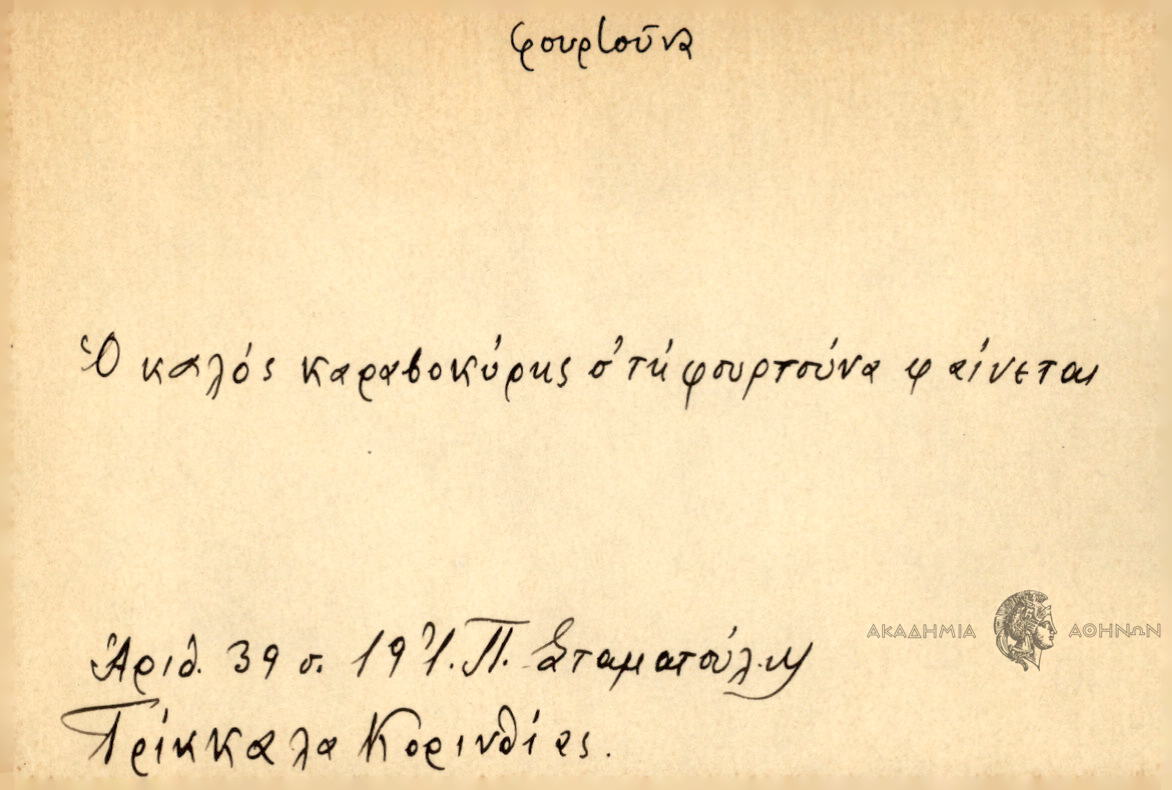 φουρτοῦνα
Ὁ καλός καραβοκύρης σ' τή φουρτούνα φαίνεται
ΑΚΑΔΗΜΙΑ ΑΘΗΝΩΝ
Ἀριθ. 39 σ. 19 Π. Σταματούλη
Τρίκκαλα Κορινθίας.